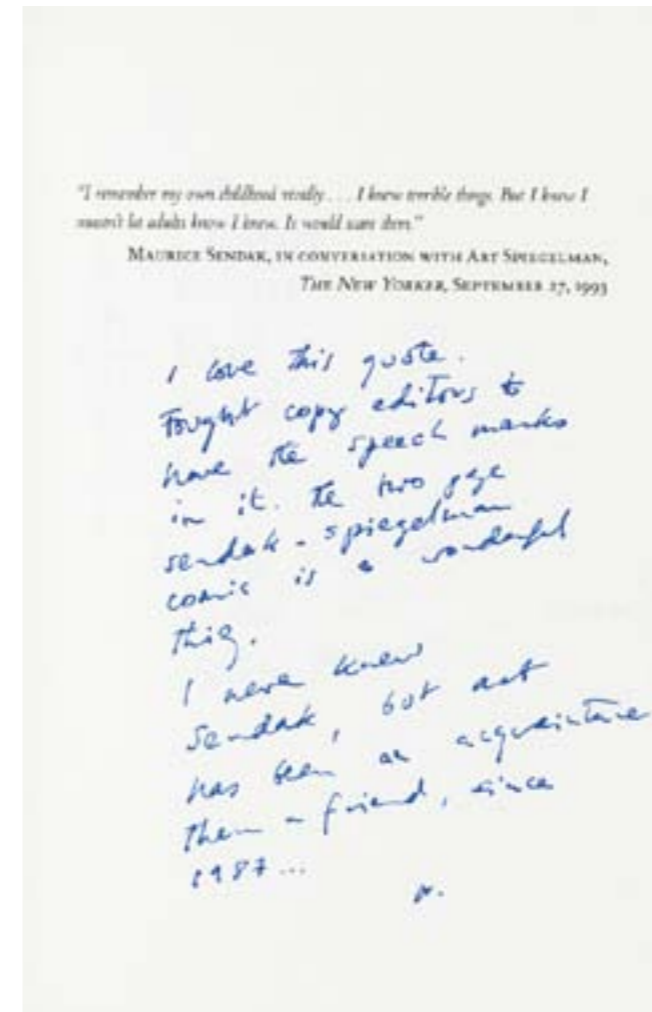 "I remember my own childhood vividly . . . I knew terrible things. But I knew I
mustn't let adults know I knew. It would scare them."
MAURICE SENDAK, IN CONVERSATION WITH ART SPIEGELMAN,
THE NEW YORKER, SEPTEMBER 27, 1993
I love this quote.
Fought copy editors to
have the speech marks
in it. The two page
sendak - spiegelman
comic is a wonderful
thing.
I never knew
Sendak, but art
has been an acquaintance
then a friend, since
1987...
N.